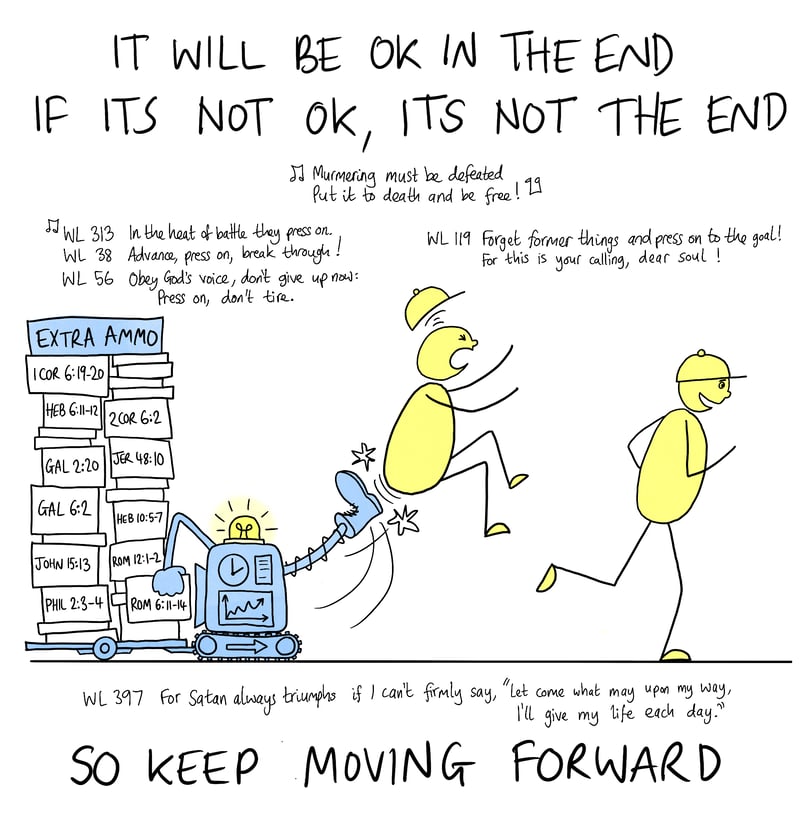 IT WILL BE OK IN THE END
IF ITS NOT OK, ITS NOT THE END
♫ Murmering must be defeated
Put it to death and be free! ♫
♫ WL 313 In the heat of battle they press on.
WL 38 Advance, press on, break through!
WL 56 Obey God's voice, don't give up now:
Press on, don't tire.
WL 119 Forget former things and press on to the goal!
For this is your calling, dear soul!
EXTRA AMMO
1 COR 6:19-20
HEB 6:11-12
2 COR 6:2
GAL 2:20
JER 48:10
GAL 6:2
HEB 10:5-7
JOHN 15:13
ROM 12:1-2
PHIL 2:3-4
ROM 6:11-14
WL 397 For Satan always triumphs if I can't firmly say, "Let come what may upon my way,
I'll give my life each day."
SO KEEP MOVING FORWARD